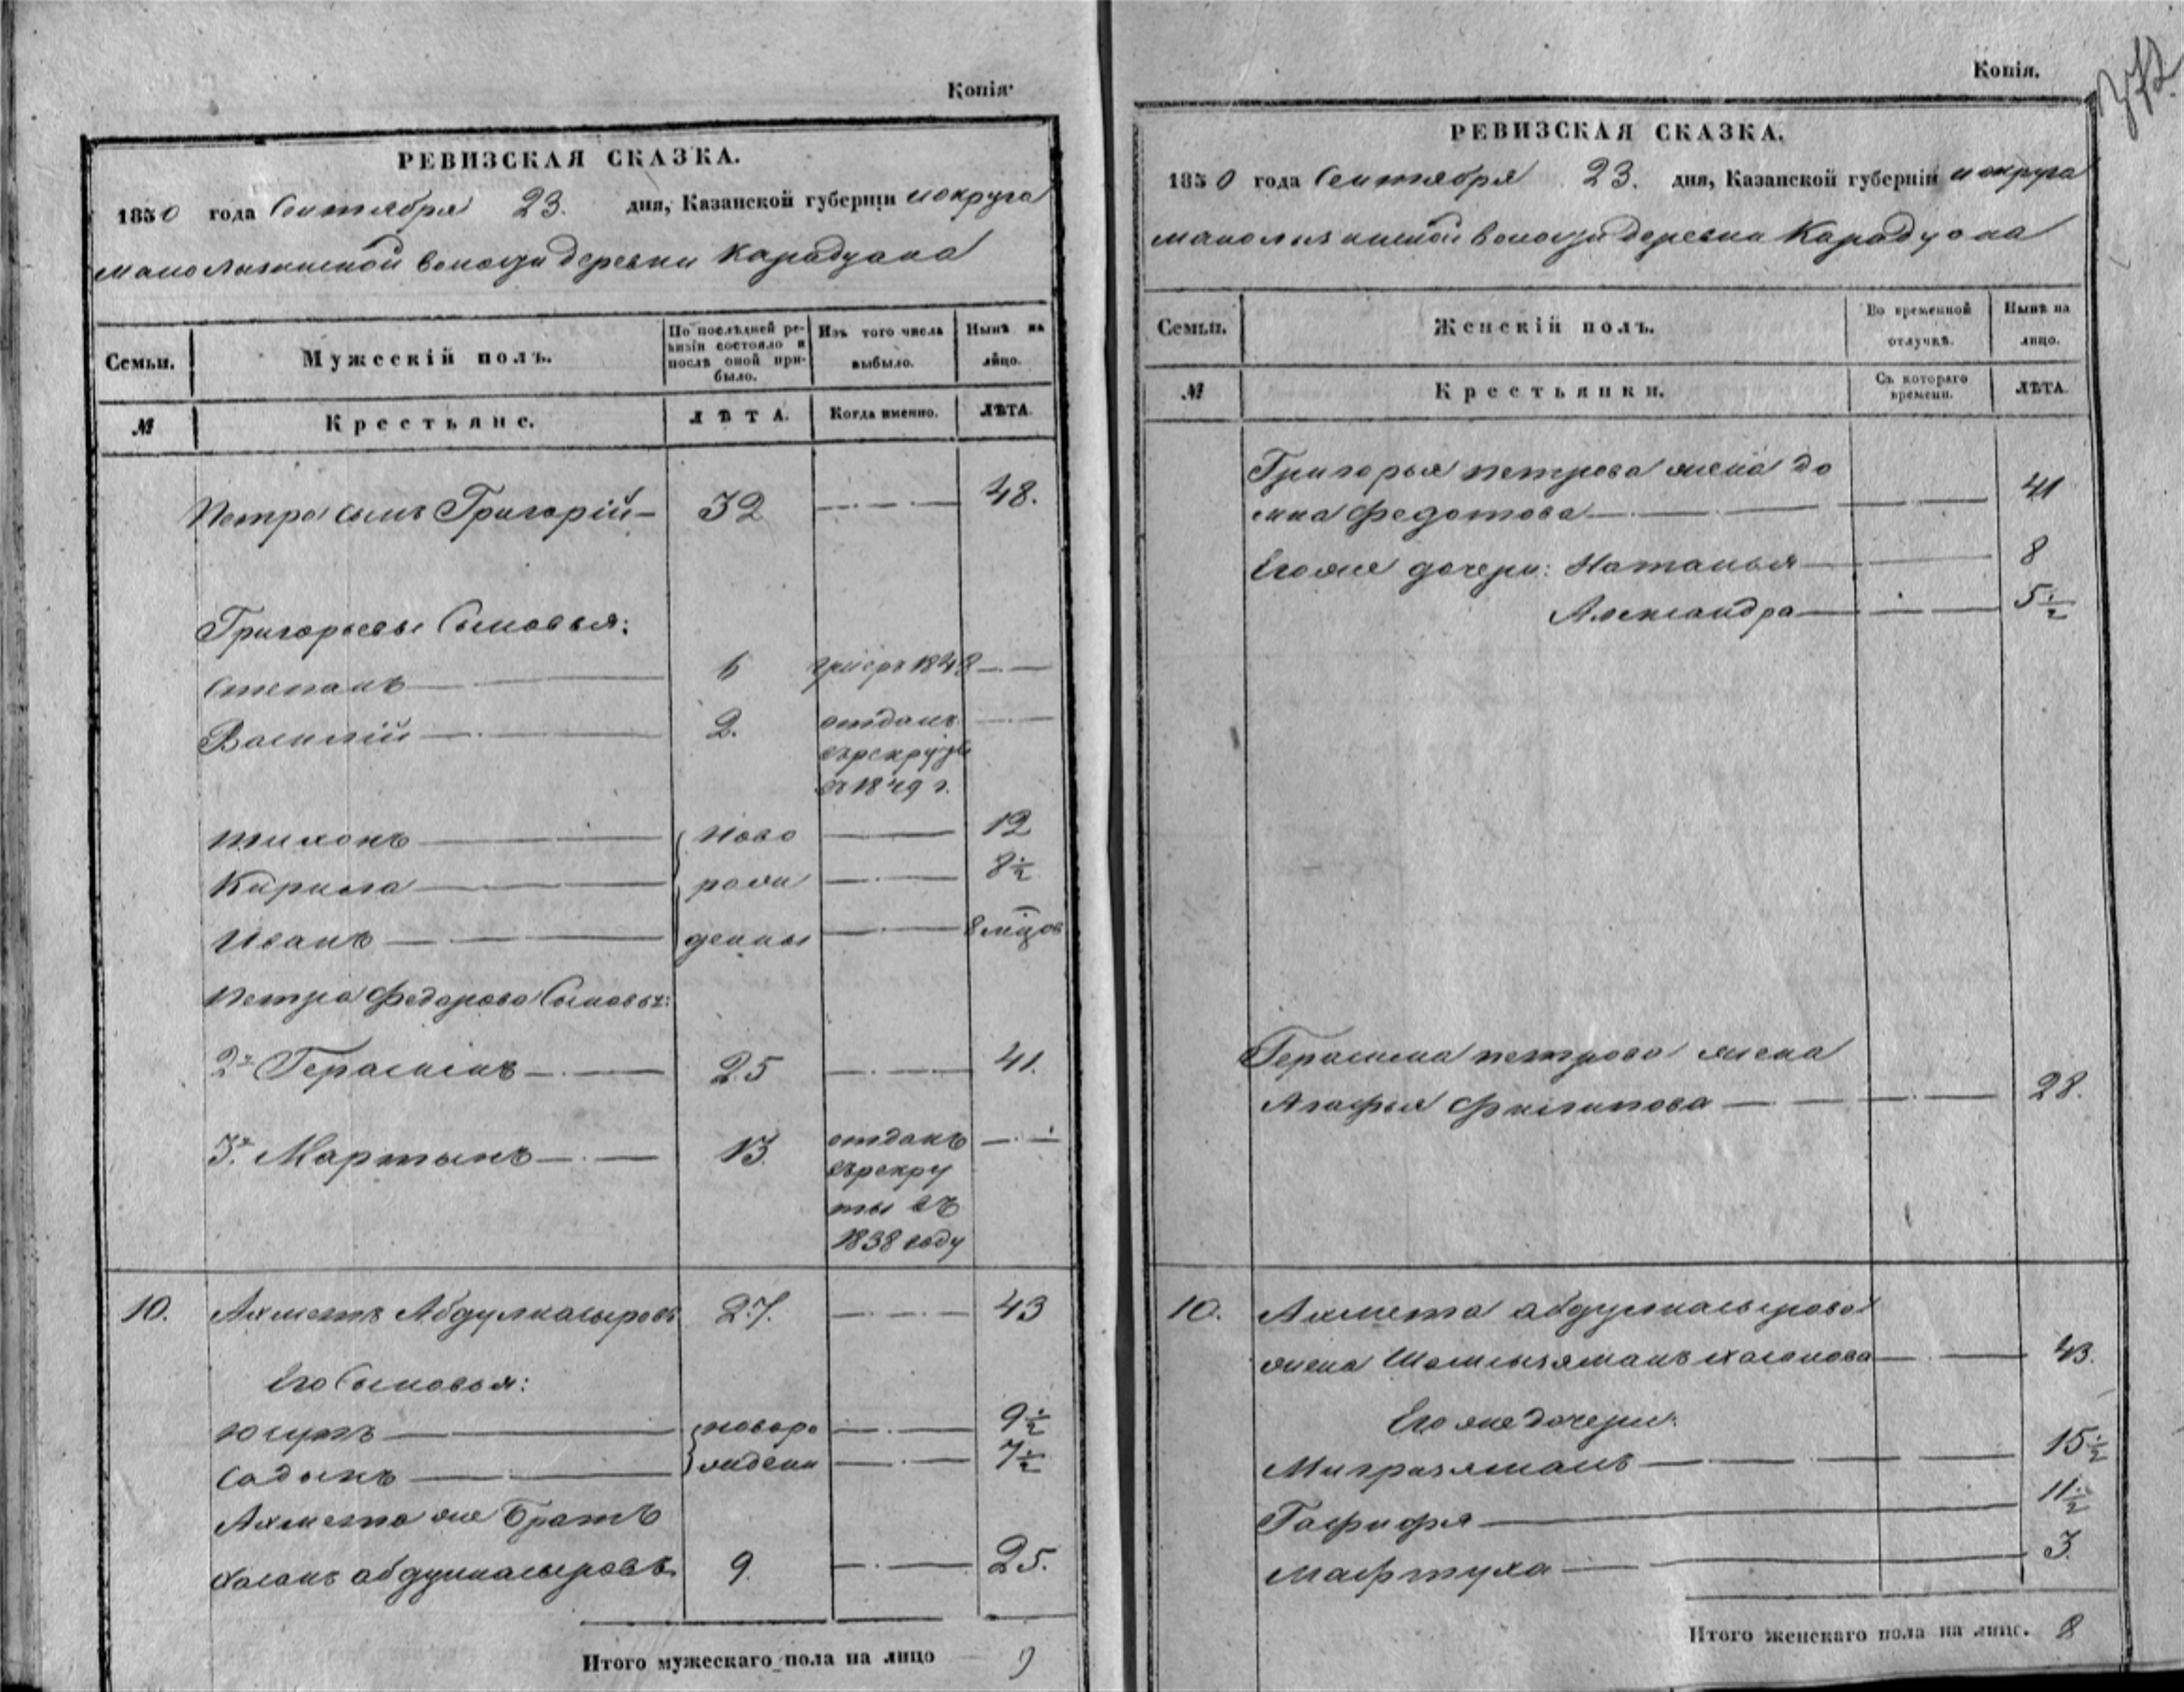 Копія
РЕВИЗСКАЯ СКАЗКА.
1850 года Сентября 23. дня, Казанской губерніи и округа
волости деревни Карадуана
Семьи.
Мужескій полъ.
По послѣдней ревизіи состояло и послѣ оной прибыло.
Изъ того числа выбыло.
Нынѣ на лицо.
№
Крестьяне.
ЛѢТА.
Когда именно.
ЛѢТА.
Петра сынъ Григорій 32 48.
Григорьевы Сыновья:
Степанъ 6 1848
Василій 2. отданъ
въ рекруты
въ 1849 г.
Тихонъ ново 12
Кирила рож 8½
Иванъ денны 8 мѣцов
Петра Федорова Сыновья:
2й Герасимъ 25 41.
3й Мартынъ 13 отданъ
въ рекру
ты въ
1838 году
10. Ахметъ Абдулнасыровъ 27. 43
Его Сыновья:
Юсупъ новоро 9½
Садыкъ ждени 7½
Ахмета же Братъ
Хасанъ абдулнасыровъ 9. 25.
Итого мужескаго пола на лицо 9
Копія.
РЕВИЗСКАЯ СКАЗКА.
1850 года Сентября 23. дня, Казанской губерніи и округа
волости деревни Карадуана
Семьи.
Женскій полъ.
Во временной отлучкѣ.
Нынѣ на лицо.
№
Крестьянки.
Съ котораго времени.
ЛѢТА.
Григорья петрова жена до
мна Федотова 41
Его же дочери: Наталья 8
Александра 5½
Герасима петрова жена
Агафья Филипова 28.
10. Ахмета абдулнасырова
жена Шамсызяманъ хасанова 43.
Его же дочери:
Мигризяманъ 15½
Гафифя 11½
Мафтуха 3.
Итого женскаго пола на лицо. 8